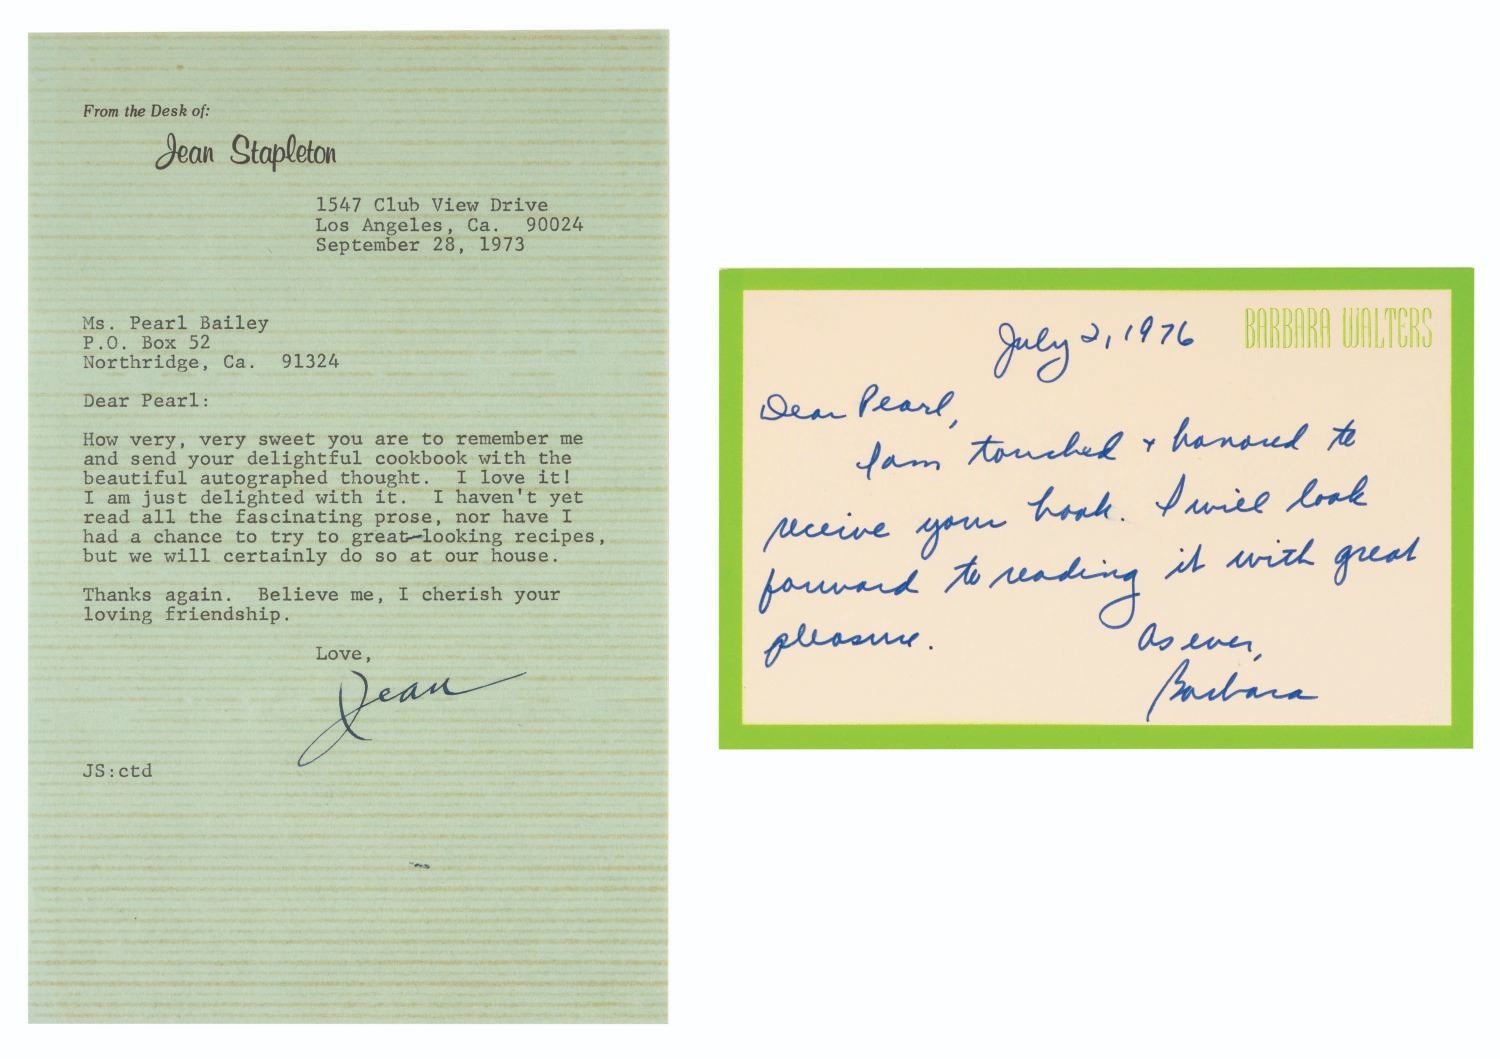 From the Desk of:
Jean Stapleton
1547 Club View Drive
Los Angeles, Ca.  90024
September 28, 1973
Ms. Pearl Bailey
P.O. Box 52
Northridge, Ca.  91324
Dear Pearl:
How very, very sweet you are to remember me
and send your delightful cookbook with the
beautiful autographed thought.  I love it!
I am just delighted with it.  I haven't yet
read all the fascinating prose, nor have I
had a chance to try to great-looking recipes,
but we will certainly do so at our house.
Thanks again.  Believe me, I cherish your
loving friendship.
Love,
Jean
JS:ctd
BARBARA WALTERS
July 2, 1976
Dear Pearl,
I am touched + honored to
receive your book. I will look
forward to reading it with great
pleasure.
As ever,
Barbara